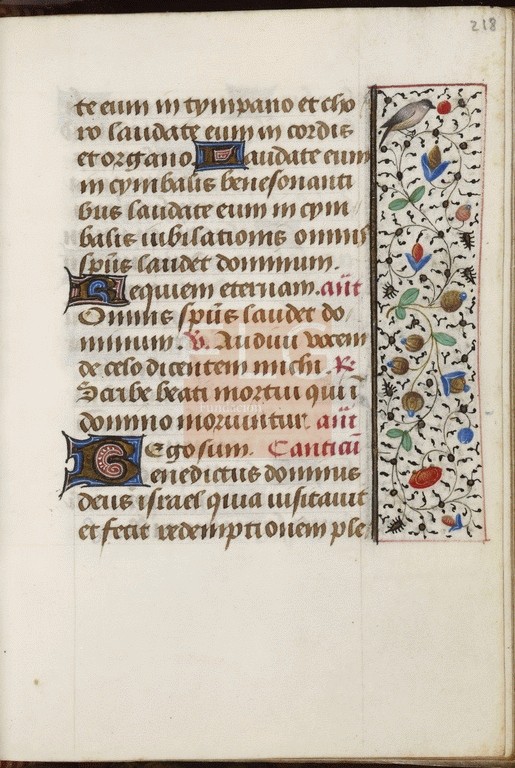 218
te eum in tympano et cho
ro laudate eum in cordis
et organo. Laudate eum
in cymbalis benesonanti
bus laudate eum in cym
balis iubilationis omnis
spūs laudet dominum.
Requiem eternam. ant̄
Omnis spūs laudet do
minum. V. Audiui vocem
de celo dicentem michi. R
Scribe beati mortui qui ī
domino moriuntur. ant̄
Ego sum. Canticū
Benedictus dominus
deus israel quia uisitauit
et fecit redemptionem ple